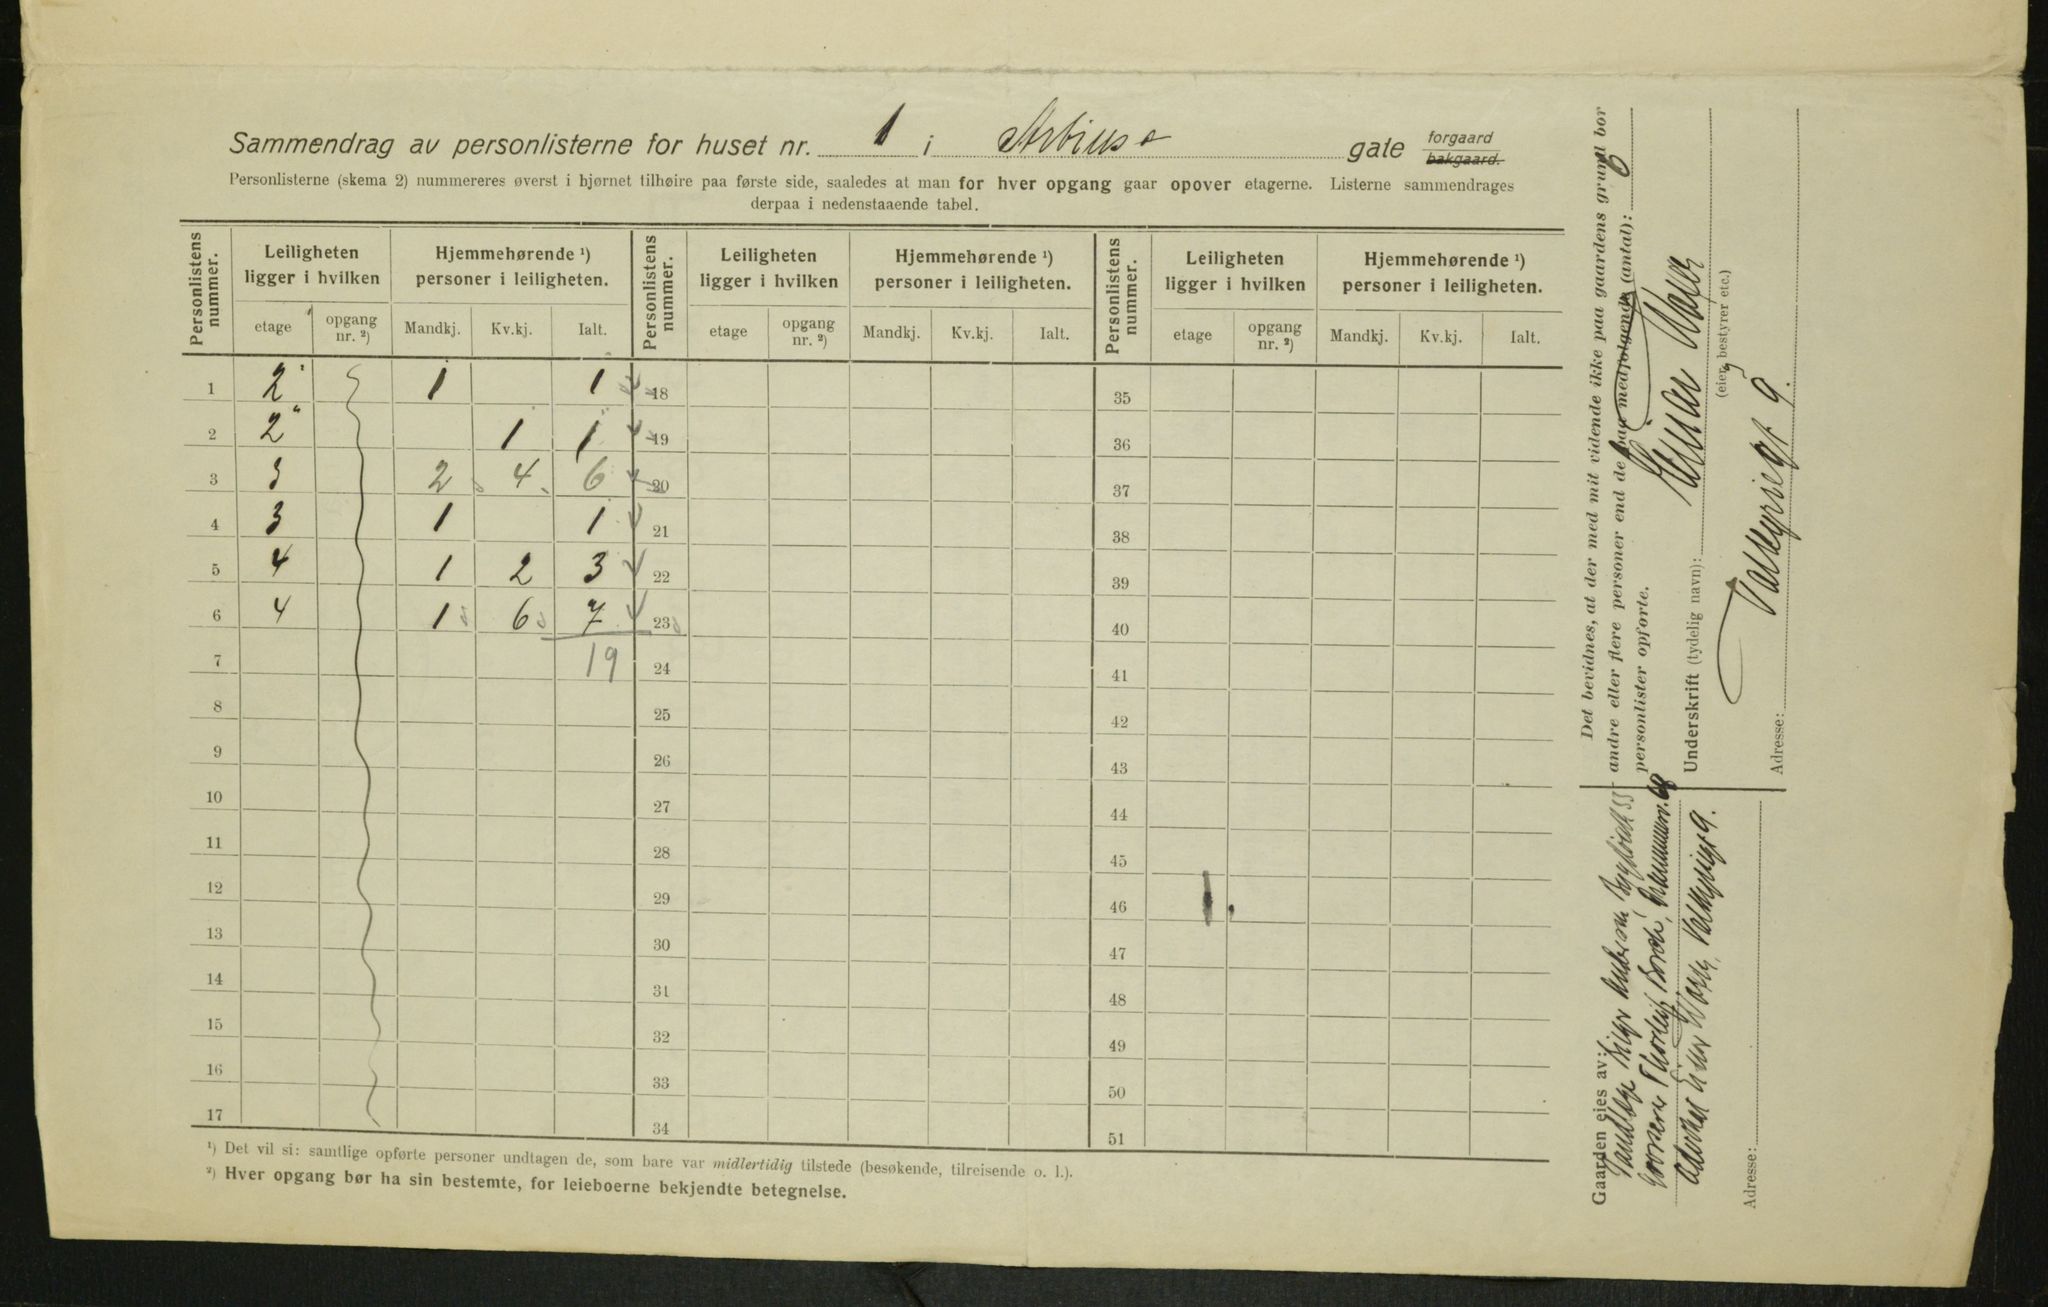 Sammendrag av personlisterne for huset nr. 1 i Arbins gate forgaard bakgaard.
Personlisterne (skema 2) nummereres øverst i hjørnet tilhøire paa første side, saaledes at man for hver opgang gaar opover etagerne. Listerne sammendrages
derpaa i nedenstaaende tabel.
Personlistens nummer. Leiligheten ligger i hvilken Hjemmehørende ¹) personer i leiligheten. Personlistens nummer. Leiligheten ligger i hvilken Hjemmehørende ¹) personer i leiligheten. Personlistens nummer. Leiligheten ligger i hvilken Hjemmehørende ¹) personer i leiligheten.
etage opgang nr. ²) Mandkj. Kv.kj. Ialt. etage opgang nr. ²) Mandkj. Kv.kj. Ialt. etage opgang nr. ²) Mandkj. Kv.kj. Ialt.
1 2 1 1 18 35
2 2 1 1 19 36
3 3 2 4 6 20 37
4 3 1 1 21 38
5 4 1 2 3 22 39
6 4 1 6 7 23 40
7 19 24 41
8 25 42
9 26 43
10 27 44
11 28 45
12 29 46
13 30 47
14 31 48
15 32 49
16 33 50
17 34 51
¹) Det vil si: samtlige opførte personer undtagen de, som bare var midlertidig tilstede (besøkende, tilreisende o. l.).
²) Hver opgang bør ha sin bestemte, for leieboerne bekjendte betegnelse.
Det bevidnes, at der med mit vidende ikke paa gaardens grund bor
andre eller flere personer end de paa medfølgende (antal): 6
personlister opførte.
Underskrift (tydelig navn): Einar
(eier, bestyrer etc.)
Adresse: Valkyriegt 9.
Gaarden eies av:
Thorleif 68
Einar Valkyriegt 9.
Adresse: